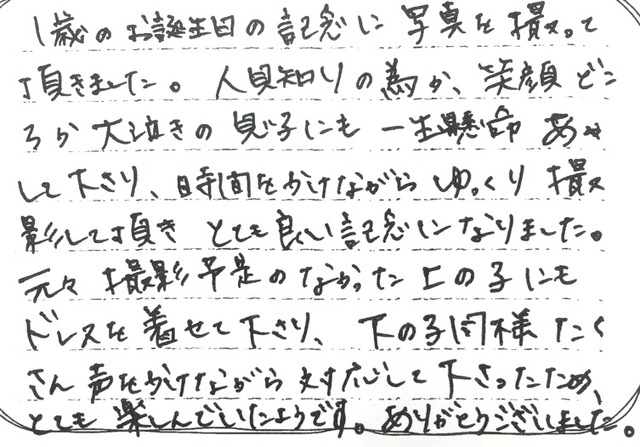 1歳のお誕生日の記念に写真を撮って
頂きました。人見知りの為か、笑顔どこ
ろか大泣きの息子にも一生懸命あや
して下さり、時間をかけながらゆっくり撮
影して頂きとても良い記念になりました。
元々撮影予定のなかった上の子にも
ドレスを着せて下さり、下の子同様たく
さん声をかけながら対応して下さったため、
とても楽しんでいたようです。ありがとうございました。